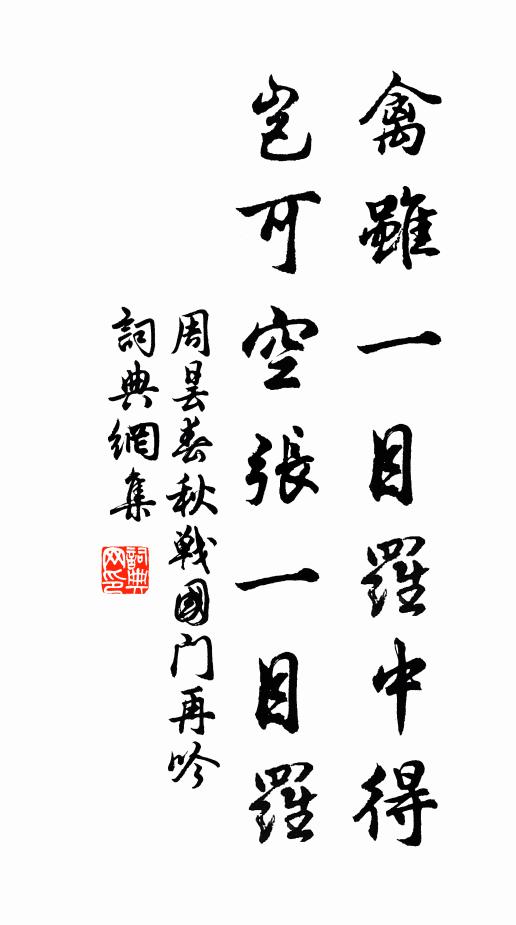 禽雖一目羅中得
豈可空張一目羅
周曇春秋戰國门再吟
詞典網集
詞典网印